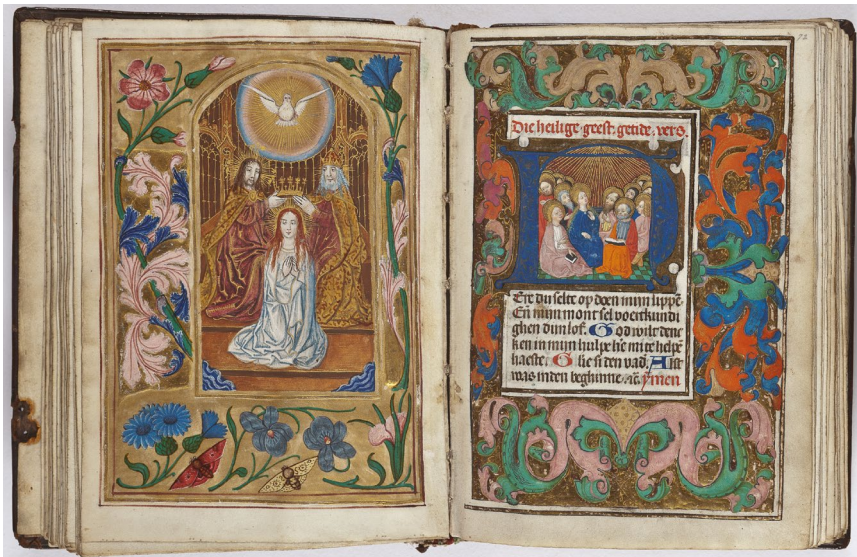 72
Die heilige geest getide. vers.
Ere du selte op doen mijn lippē
Eñ mijn mont sel voertkundi
ghen dijn lof. God wilt denc
ken in mijn hulpe h̄e mi te helpē
haeste. Glie si den vad. Alst
was inden beghinne. Amen